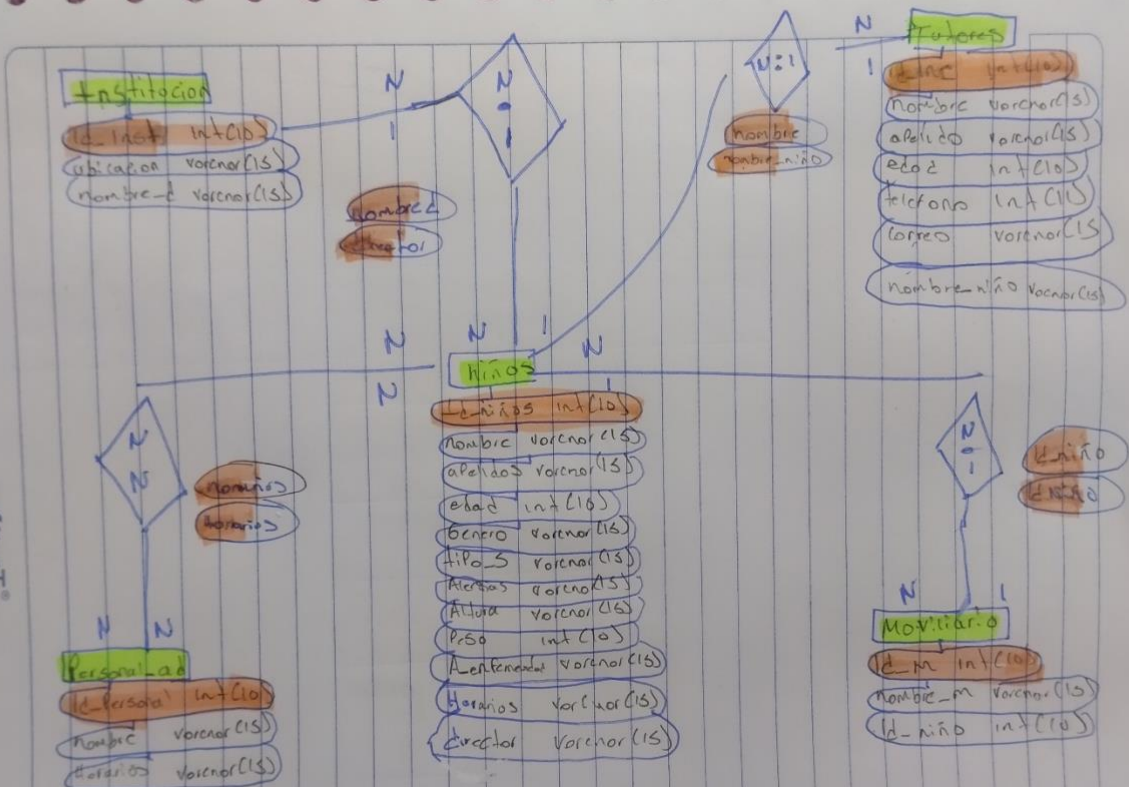 Institucion
Id_inst int(10)
ubicacion varchar(15)
nombre_d varchar(15)
N
1
N:1
nombre d
director
N:1
nombre
nombre_niño
N
1
Tutores
nombre varchar(15)
apellido varchar(15)
edad int(10)
telefono int(11)
correo varchar(15)
nombre_niño varchar(15)
N
1
N
1
N
N
niños
Id_niños int(10)
nombre varchar(15)
apellidos varchar(15)
edad int(10)
Genero varchar(15)
tipo_S varchar(15)
Alergias varchar(15)
Altura varchar(15)
Peso int(10)
A_enfermedad varchar(15)
Horarios varchar(15)
director varchar(15)
N:N
horarios
N
N
Personal_ad
Id_Personal int(10)
nombre varchar(15)
Horarios varchar(15)
N:1
Id_niño
Id_niño
N
1
Moviliario
Id_m int(10)
nombre_m varchar(15)
Id_niño int(10)